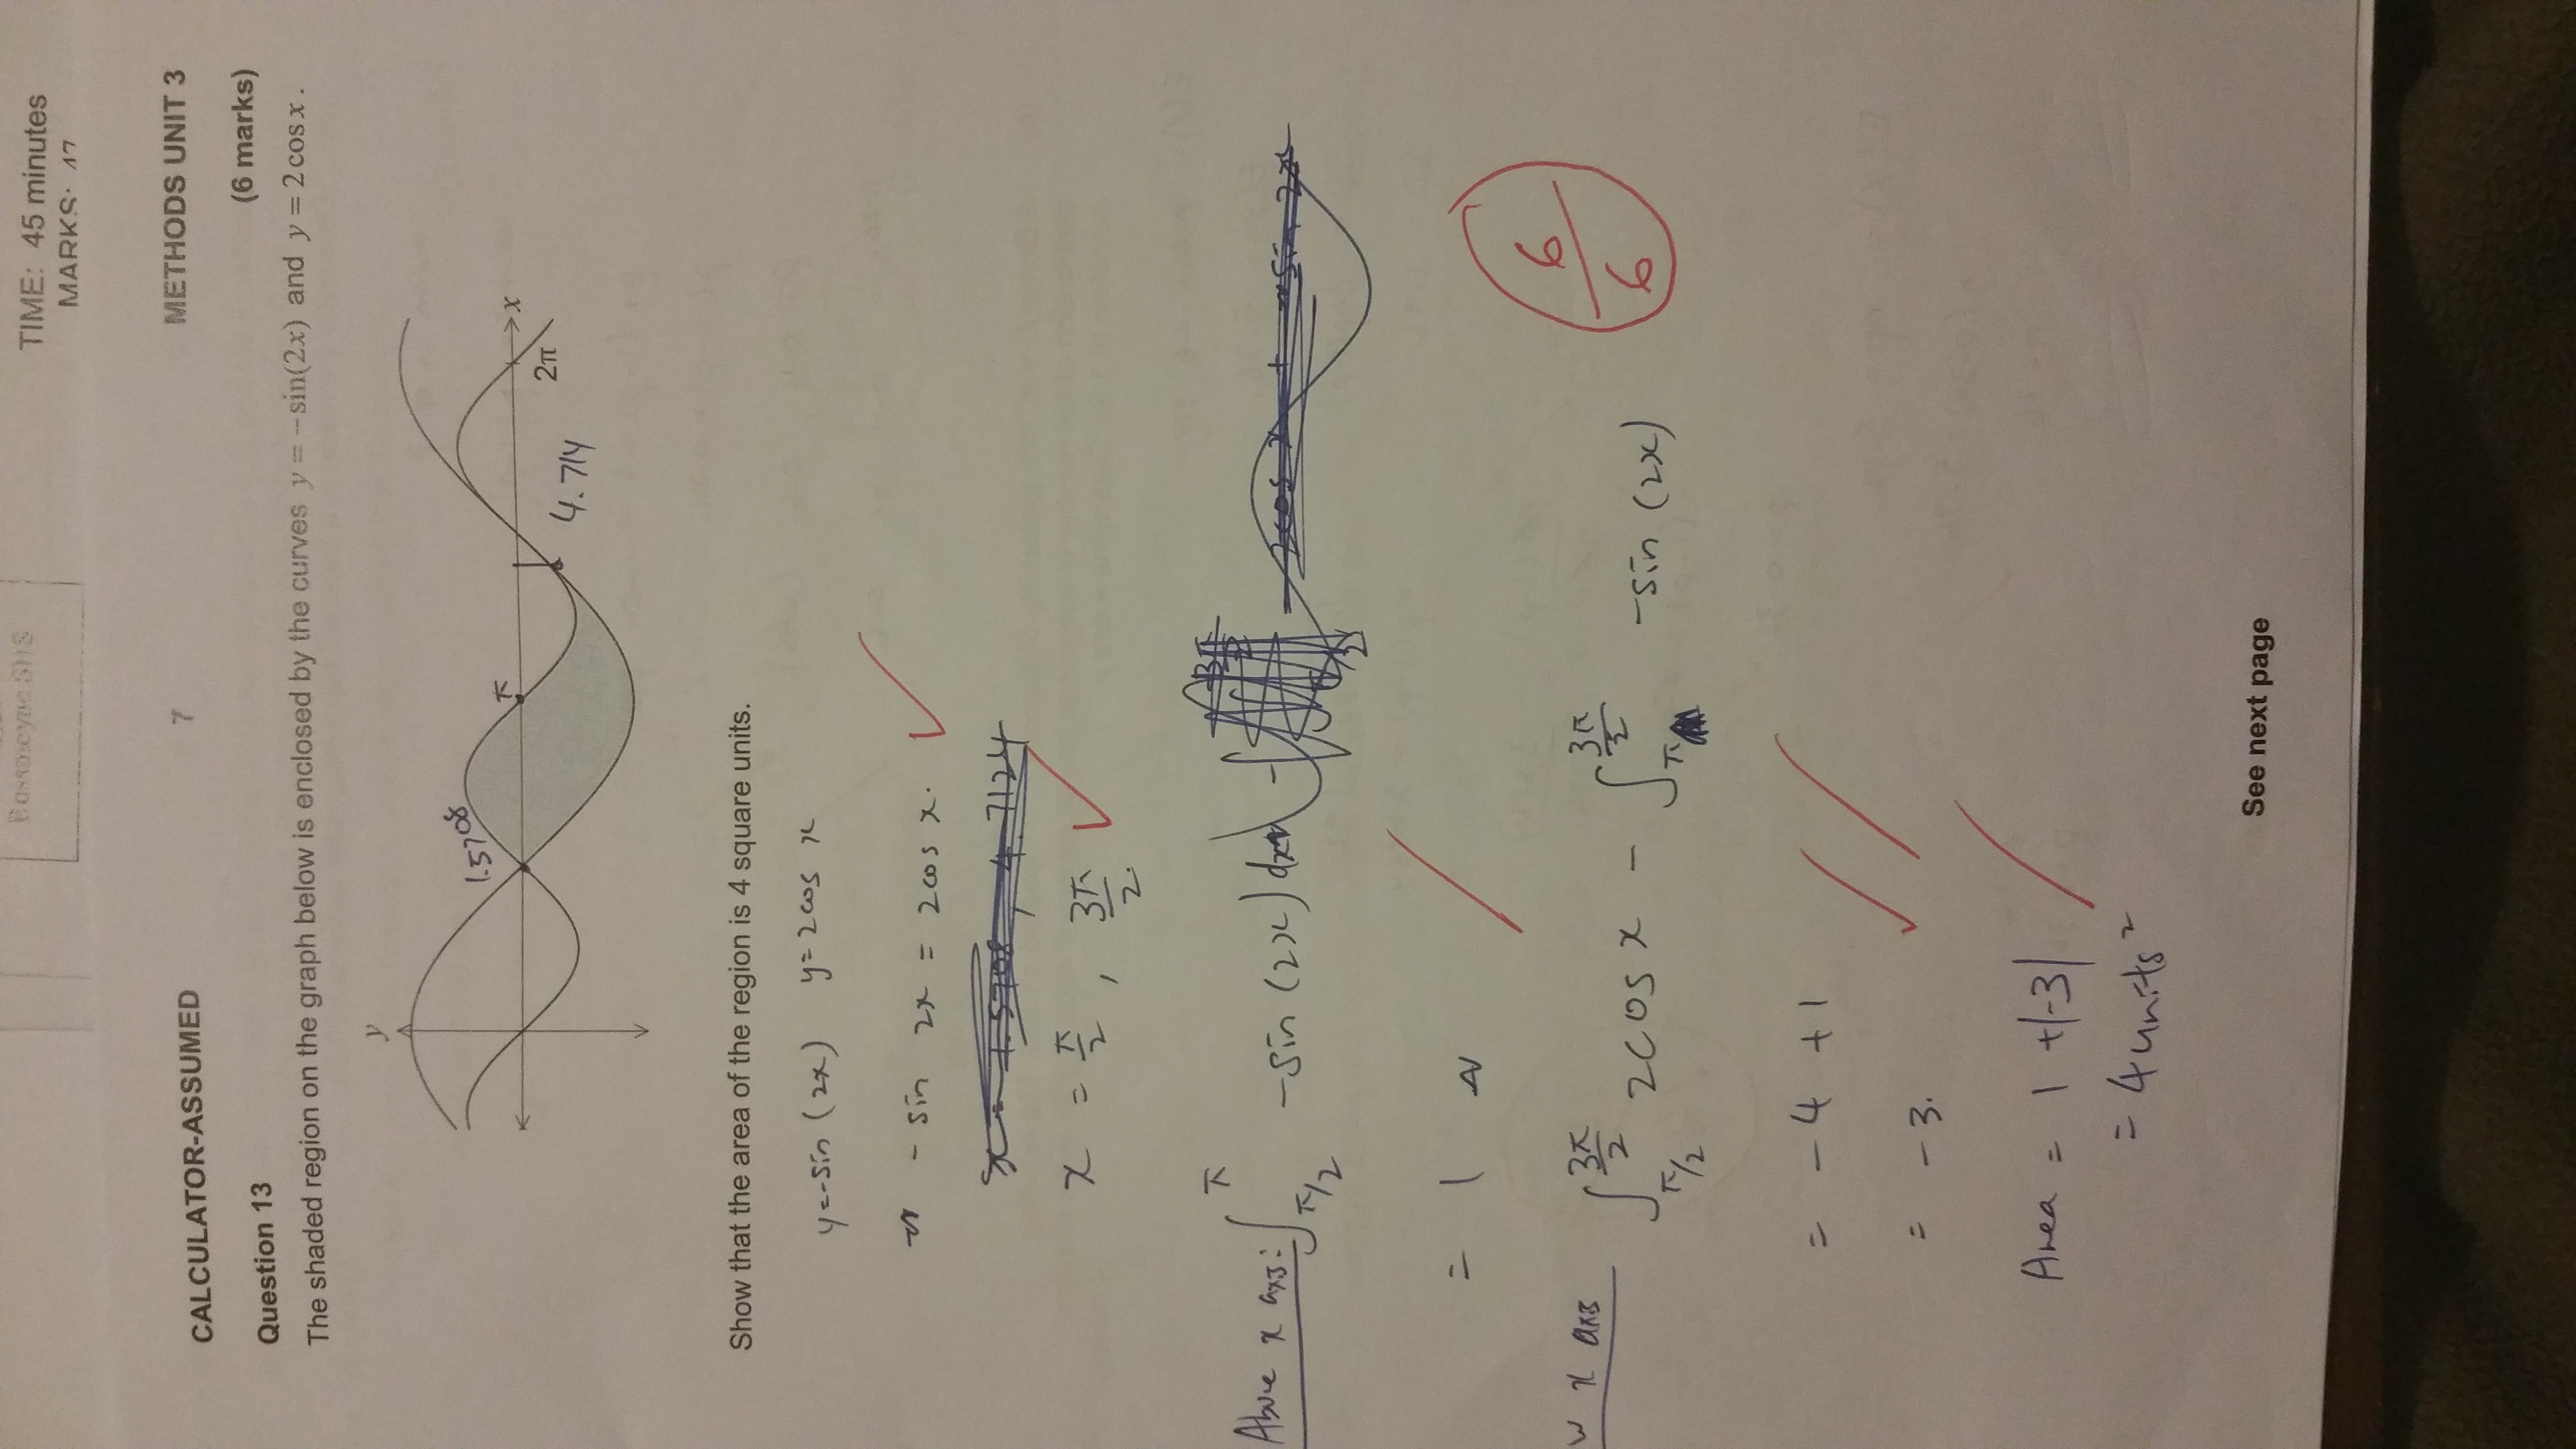 SHS
TIME: 45 minutes
MARKS: 47
CALCULATOR-ASSUMED 7 METHODS UNIT 3
Question 13 (6 marks)
The shaded region on the graph below is enclosed by the curves y = −sin(2x) and y = 2 cos x .
y
1.5708
π
x
2π
4.714
Show that the area of the region is 4 square units.
y=-sin (2x) y= 2cos x
- sin 2x = 2cos x.
x = 1.5708, 4.7124
x = π/2 , 3π/2.
Above x axis: ∫_{π/2}^{π} -sin (2x) dx
= 1
w x axis ∫_{π/2}^{3π/2} 2cos x - ∫_{π}^{3π/2} -sin (2x)
6/6
= -4 +1
= -3.
Area = 1 +|-3|
= 4units²
See next page